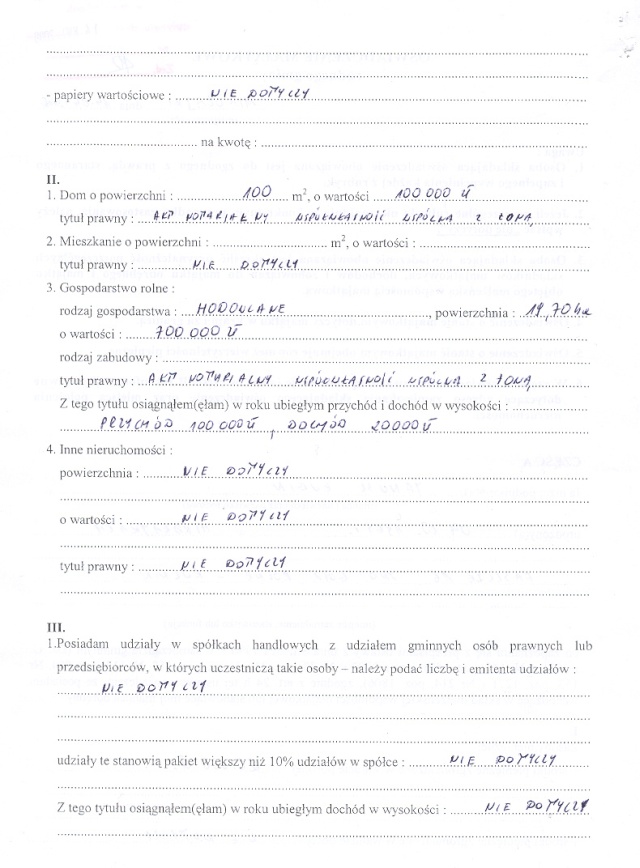 - papiery wartościowe : NIE DOTYCZY
na kwotę :
II.
1. Dom o powierzchni : 100 m², o wartości 100 000 zł
tytuł prawny : AKT NOTARIALNY WSPÓŁWŁASNOŚĆ WSPÓLNA Z ŻONĄ
2. Mieszkanie o powierzchni : m², o wartości :
tytuł prawny : NIE DOTYCZY
3. Gospodarstwo rolne :
rodzaj gospodarstwa : HODOWLANE, powierzchnia : 70 ha
o wartości : 700 000 zł
rodzaj zabudowy :
tytuł prawny : AKT NOTARIALNY WSPÓŁWŁASNOŚĆ WSPÓLNA Z ŻONĄ
Z tego tytułu osiągnąłem(ęłam) w roku ubiegłym przychód i dochód w wysokości :
PRZYCHÓD 100 000 zł, DOCHÓD 20 000 zł
4. Inne nieruchomości :
powierzchnia : NIE DOTYCZY
o wartości : NIE DOTYCZY
tytuł prawny : NIE DOTYCZY
III.
1.Posiadam udziały w spółkach handlowych z udziałem gminnych osób prawnych lub
przedsiębiorców, w których uczestniczą takie osoby – należy podać liczbę i emitenta udziałów :
NIE DOTYCZY
udziały te stanowią pakiet większy niż 10% udziałów w spółce : NIE DOTYCZY
Z tego tytułu osiągnąłem(ęłam) w roku ubiegłym dochód w wysokości : NIE DOTYCZY